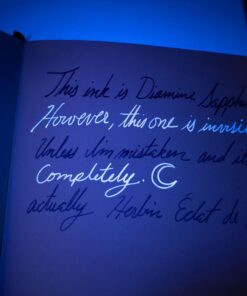 This ink is Diamine Sapph
However, this one is invisi
Unless I'm mistaken and it
Completely.
actually Herbin Éclat de